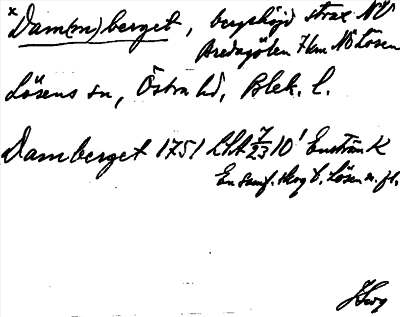 x Dam(m)berget, bergshöjd strax NV
Bredagölen 7 km NÖ Lösen
Lösens sn, Östra hd, Blek. l.
Damberget 1751 LSA 7/23 10¹ Ensträn K
En samf. skog t. Lösen m. fl.